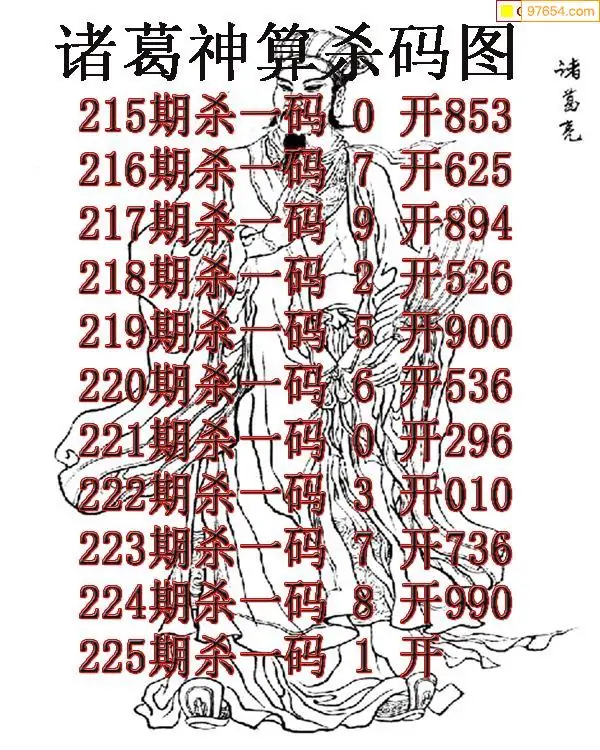 97654.com
诸葛神算杀码图
诸葛亮
215期杀一码 0 开853
216期杀一码 7 开625
217期杀一码 9 开894
218期杀一码 2 开526
219期杀一码 5 开900
220期杀一码 6 开536
221期杀一码 0 开296
222期杀一码 3 开010
223期杀一码 7 开736
224期杀一码 8 开990
225期杀一码 1 开